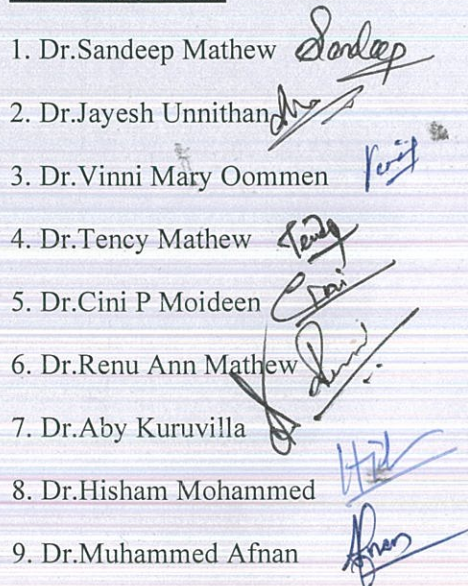 1. Dr.Sandeep Mathew Sandeep
2. Dr.Jayesh Unnithan
3. Dr.Vinni Mary Oommen
4. Dr.Tency Mathew Tency
5. Dr.Cini P Moideen Cini
6. Dr.Renu Ann Mathew Renu
7. Dr.Aby Kuruvilla
8. Dr.Hisham Mohammed
9. Dr.Muhammed Afnan Afnan